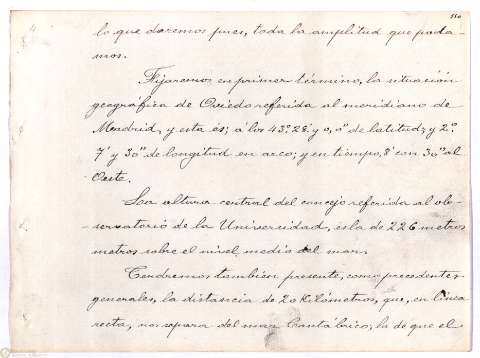 110
lo que daremos pues, toda la amplitud que poda-
mos.
Fijaremos en primer término, la situación
geográfica de Oviedo referida al meridiano de
Madrid, y esta és; á los 43º 28' y 0,0" de latitud; y 2º.
7' y 30" de longitud en arco; y en tiempo, 8' con 30" al
Oeste.
La altura central del concejo referida al ob-
servatorio de la Universidad, es la de 226 metros
metros sobre el nivel medio del mar.
Tendremos también presente, como precedentes
generales, la distancia de 20 Kilómetros, que, en linea
recta, nos separa del mar Cantábrico; la de que el